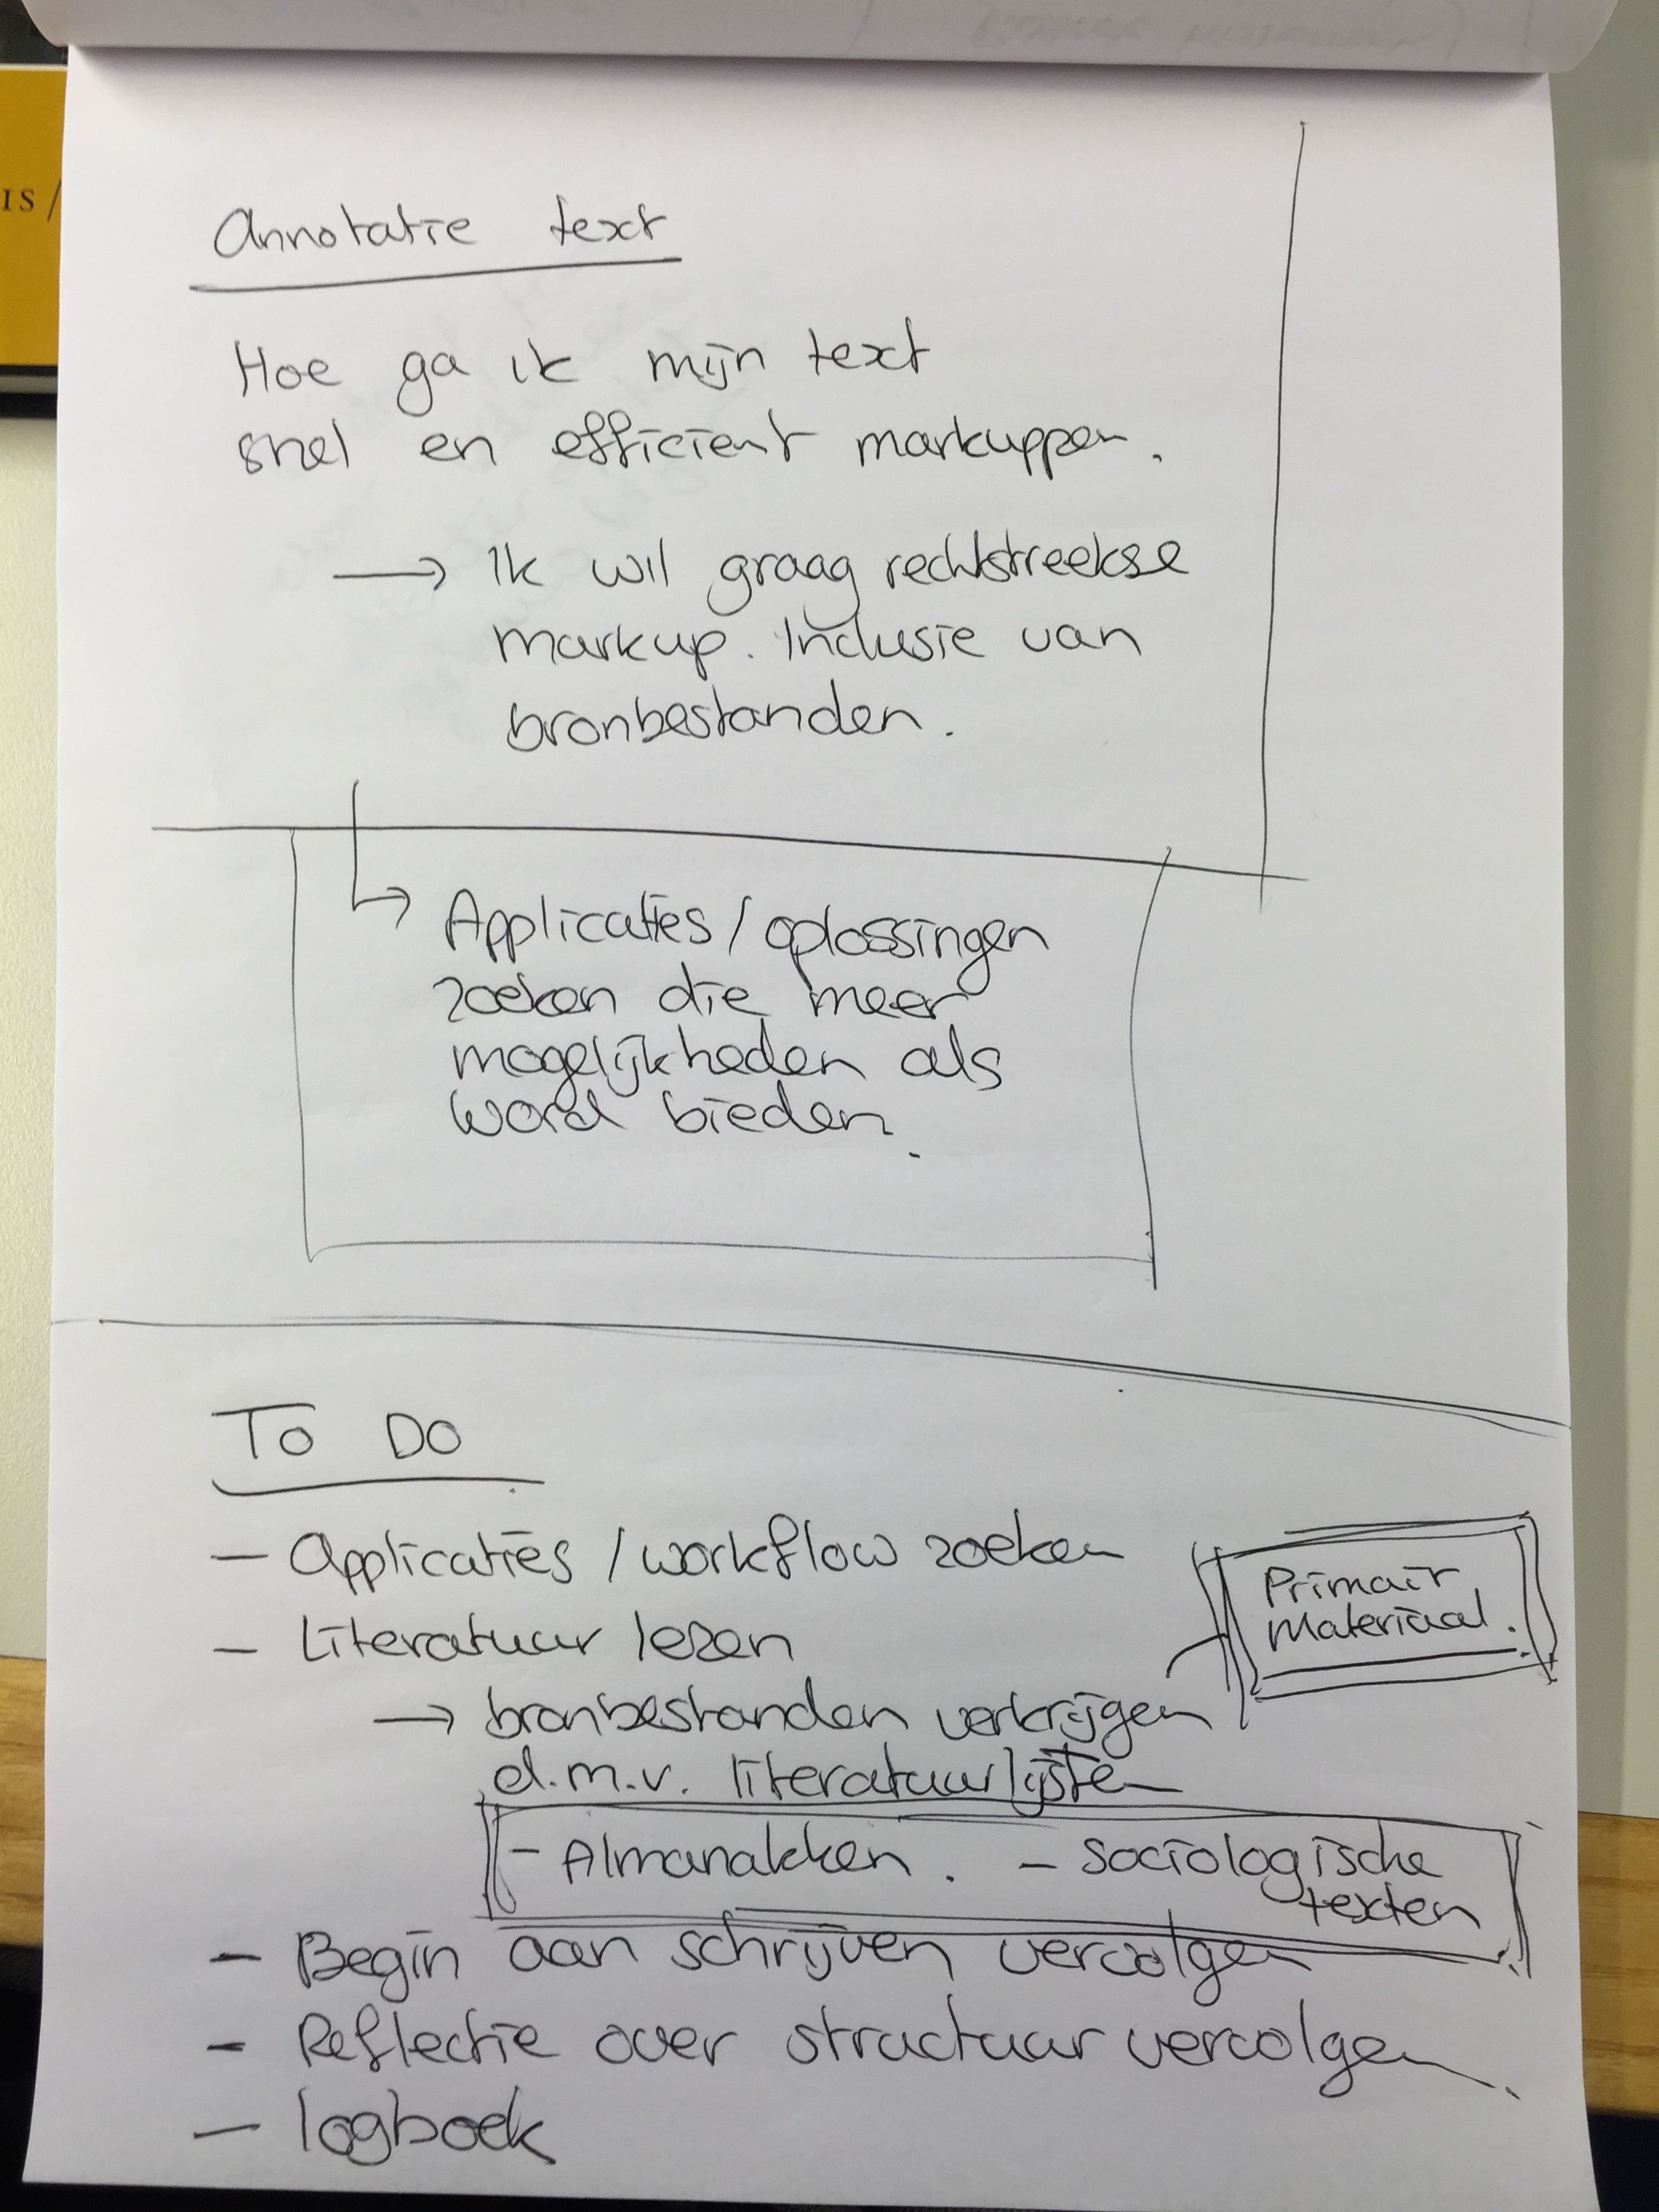 IS/
Annotatie text
Hoe ga ik mijn text
snel en efficient markuppen.
→ Ik wil graag rechtstreekse
markup. Inclusie van
bronbestanden.
↳ Applicaties / oplossingen
zoeken die meer
mogelijkheden als
word bieden.
To DO
- Applicaties / workflow zoeken
- Literatuur lezen
Primair
Materiaal.
→ bronbestanden verkrijgen
d.m.v. literatuurlijsten
- Almanakken. - Sociologische
texten
- Begin aan schrijven vervolgen
- Reflectie over structuur vervolgen.
- logboek